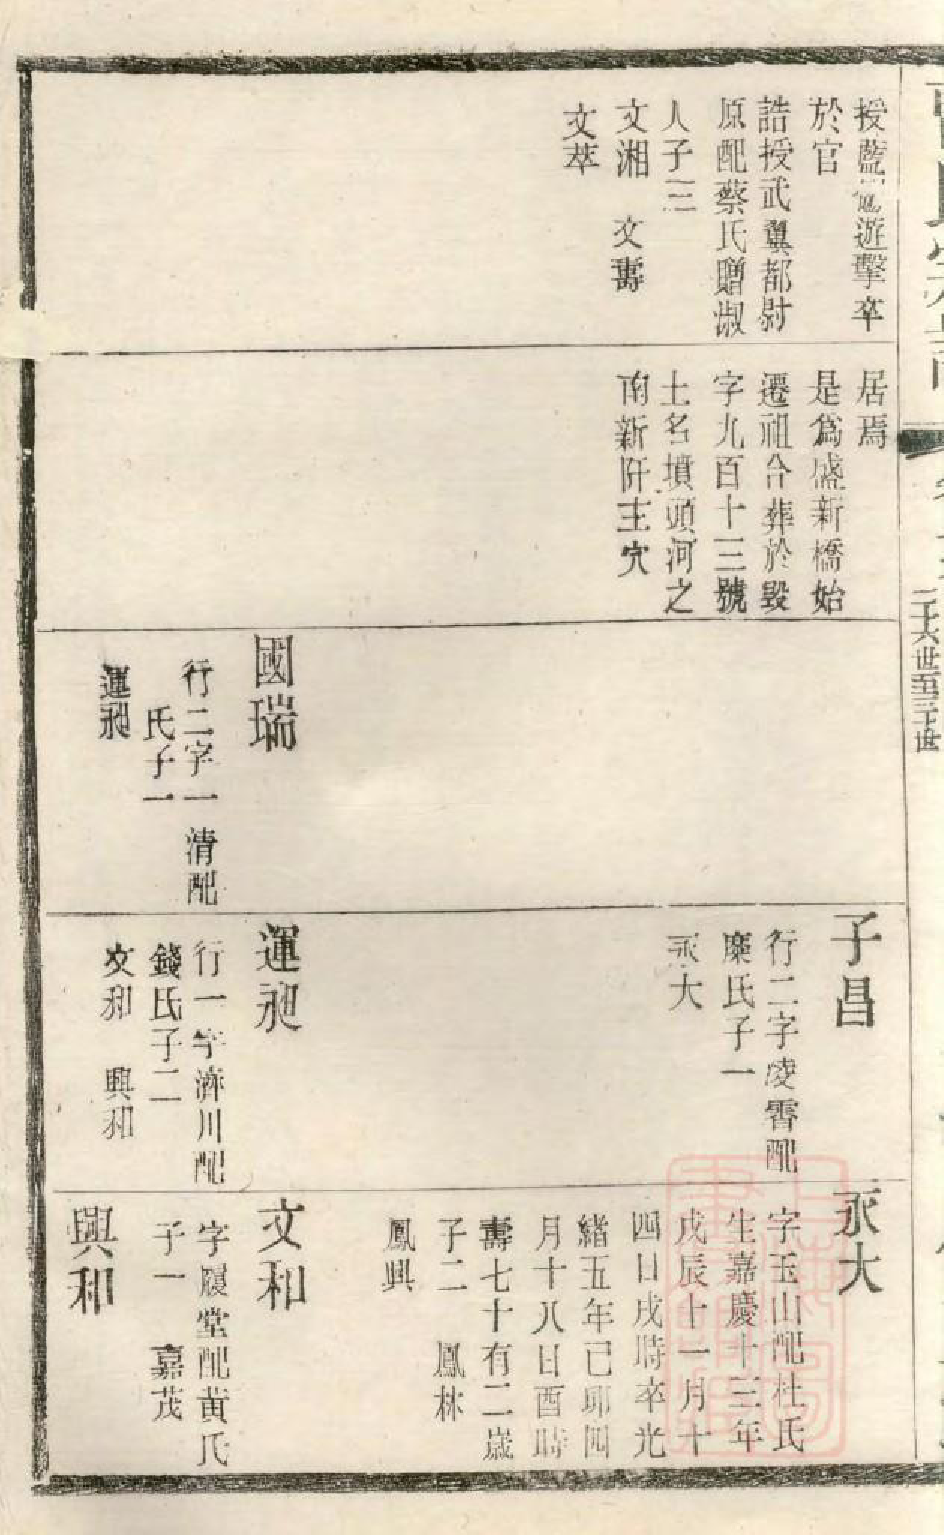 二十六世至三十世
授藍翎遊擊卒
於官
誥授武翼都尉
原配蔡氏贈淑
人子三
文湘　文壽
文萃
居焉
是為盛新橋始
遷祖合葬於毀
字九百十三號
土名墳頭河之
南新阡主穴
國瑞
行二字一清配
氏子一
運昶
子昌
行二字凌霄配
糜氏子一
永大
運昶
行一字濟川配
錢氏子二
文和　興和
永大
字玉山配杜氏
生嘉慶十三年
戊辰十一月十
四日戌時卒光
緒五年己卯四
月十八日酉時
壽七十有二歲
子二　鳳林
鳳興
文和
字履堂配黃氏
子一　嘉茂
興和